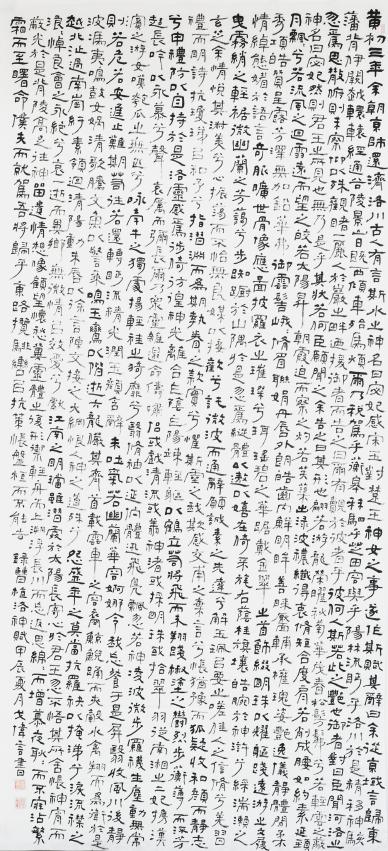 黄初三年余朝京師還濟洛川古之有言斯水之神名曰宓妃感宋玉對楚王神女之事遂作斯賦其辭曰余從京域言歸東
藩背伊闕越轘轅經通谷陵景山日既西傾車殆馬煩爾乃税駕乎蘅皋秣駟乎芝田容與乎陽林流眄乎洛川於是精移神駭
忽焉思散俯則未察仰以殊觀睹一麗人於巖之畔迺援御者而告之曰爾有覿於彼者乎彼何人斯若此之艷也御者對曰臣聞河洛之
神名曰宓妃然則君王之所見也無乃是乎其狀若何臣願聞之余告之曰其形也翩若驚鴻婉若游龍榮曜秋菊華茂春松髣髴兮若輕雲之蔽
月飄飖兮若流風之迴雪遠而望之皎若太陽昇朝霞迫而察之灼若芙蕖出淥波穠纖得衷修短合度肩若削成腰如約素延頸
秀項皓質呈露芳澤無加鉛華弗御雲髻峨峨修眉聯娟丹唇外朗皓齒内鮮明眸善睞靨輔承權瓌姿艷逸儀靜體閑柔
情綽態媚於語言奇服曠世骨像應圖披羅衣之璀璨兮珥瑶碧之華琚戴金翠之首飾綴明珠以耀軀踐遠游之文履
曳霧綃之輕裾微幽蘭之芳藹兮步踟躕於山隅於是忽焉縱體以遨以嬉左倚采旄右蔭桂旗攘皓腕於神滸兮采湍瀨之
玄芝余情悦其淑美兮心振蕩而不怡無良媒以接歡兮託微波而通辭願誠素之先達兮解玉佩以要之嗟佳人之信修兮羌習
禮而明詩抗瓊珶以和予兮指潛淵而爲期執眷眷之款實兮懼斯靈之我欺感交甫之棄言兮悵猶豫而狐疑收和顔而靜志
兮申禮防以自持於是洛靈感焉徙倚彷徨神光離合乍陰乍陽竦輕軀以鶴立若將飛而未翔踐椒塗之郁烈步蘅薄而流芳
超長吟以永慕兮聲哀厲而彌長爾乃衆靈雜遝命儔嘯侣或戲清流或翔神渚或採明珠或拾翠羽從南湘之二妃攜漢
濱之游女嘆匏瓜之無匹兮詠牽牛之獨處揚輕袿之猗靡兮翳修袖以延佇體迅飛鳧飄忽若神凌波微步羅襪生塵動無常
則若危若安進止難期若往若還轉眄流精光潤玉顔含辭未吐氣若幽蘭華容婀娜令我忘餐於是屏翳收風川后靜
波馮夷鳴鼓女媧清歌騰文魚以警乘鳴玉鸞以偕逝六龍儼其齊首載雲車之容裔鯨鯢踊而夾轂水禽翔而爲衛於是
越北沚過南岡紆素領迴清陽動朱唇以徐言陳交接之大綱恨人神之道殊兮怨盛年之莫當抗羅袂以掩涕兮淚流襟之
浪浪悼良會之永絶兮哀一逝而異鄉無微情以效愛兮獻江南之明璫雖潛處於太陽長寄心於君王忽不悟其所舍悵神宵而
蔽光於是背下陵高足往神留遺情想像顧望懷愁冀靈體之復形御輕舟而上溯浮長川而忘返思綿綿而增慕夜耿耿而不寐沾繁
霜而至曙命僕夫而就駕吾將歸乎東路攬騑轡以抗策悵盤桓而不能去 錄曹植洛神賦甲辰夏月